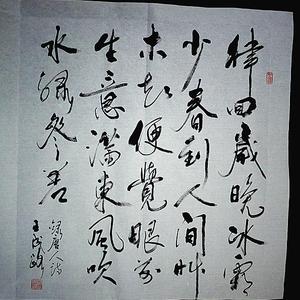 律回歲晚冰霜
少春到人間艸
木知便覺眼前
生意滿東風吹
水綠參差
錄唐人詩